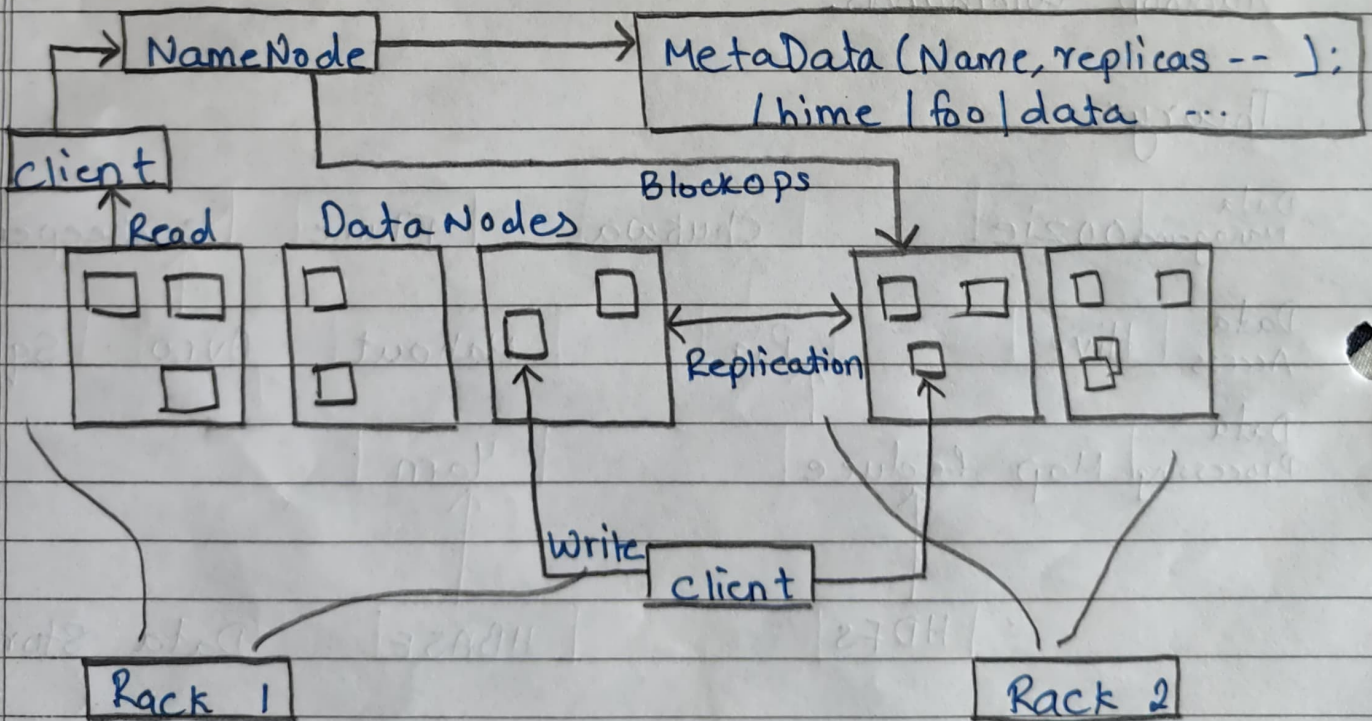 NameNode
MetaData (Name, replicas -- ):
/hime /foo/data ...
Client
Blockops
Read
DataNodes
Replication
Write
Client
Rack 1
Rack 2